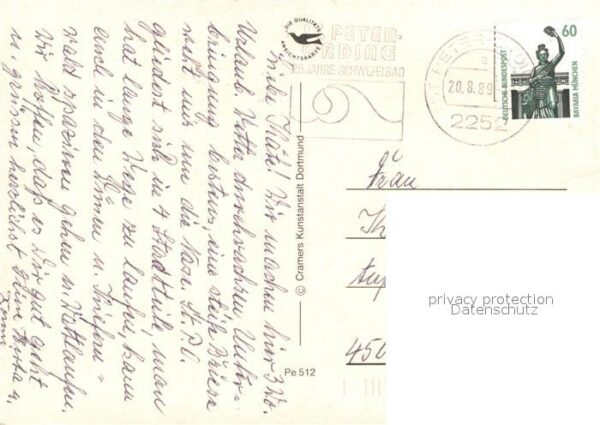 DIE QUALITÄTS
ANSICHTSKARTE
PETER-
ORDING
JAHRE SCHWEFELBAD
20.8.89
2252
60
DEUTSCHE BUNDESPOST
BAVARIA MÜNCHEN
Liebe Käte! Wir machen hier 3 Wo.
Urlaub. Nette Unter-
bringung bestens, eine steife Briese
weht uns um die Nase. St. P.O.
gliedert sich in 4 Stadtteile, man
hat lange Wege zu laufen, kann
auch in den Dünen u.
wald spazieren gehen u. Wattlaufen.
Wir hoffen, daß es Dir gut geht
u. grüssen herzlichst Deine Herta u.
© Cramers Kunstanstalt Dortmund
Pe 512
Frau
privacy protection
Datenschutz